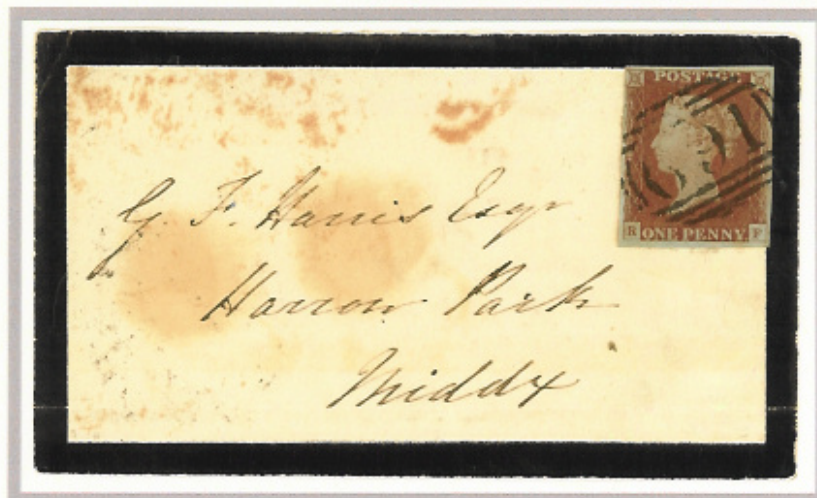 POSTAGE
691
R ONE PENNY F
G. F. Harris Esqr
Harrow Park
Middx